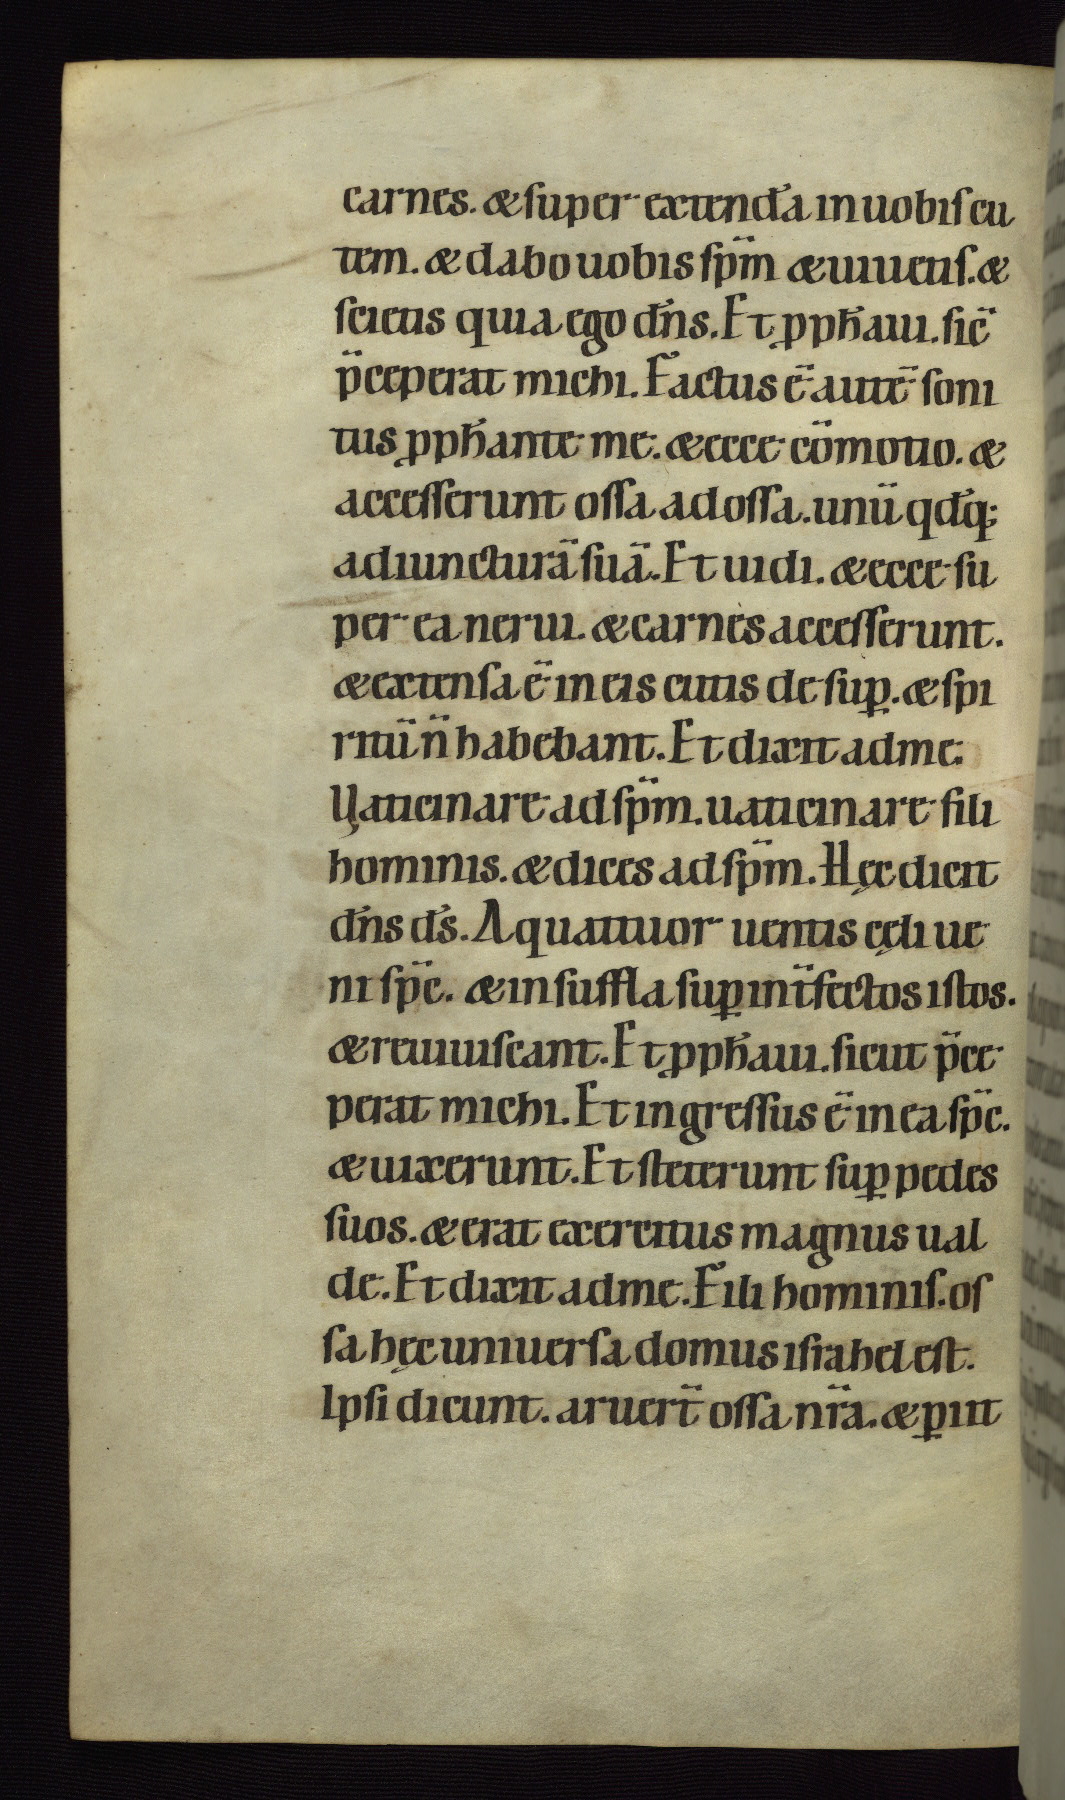 carnes. & super extend̄a in uobis cu
tem. & dabo uobis sp̄m & uiuetis. &
scietis quia ego dn̄s. Et ꝓph̄aui. sic̄
p̄ceperat michi. Factus ē autē soni
tus ꝓph̄ante me. & ecce cōmotio. &
accesserunt ossa ad ossa. unū qd̄q;
ad iuncturā suā. Et uidi. & ecce su
per ea nerui. & carnes accesserunt.
& extensa ē in eis cutis de suꝑ. & spi
ritū n̄ habebant. Et dixit ad me.
Uaticinare ad sp̄m. uaticinare fili
hominis. & dices ad sp̄m. Hęc dicit
dn̄s ds̄. A quattuor uentis cęli ue
ni sp̄c. & insuffla suꝑ int̄fectos istos.
& reuiuiscant. Et ꝓph̄aui. sicut p̄ce
perat michi. Et ingressus ē in ea sp̄c.
& uixerunt. Et steterunt suꝑ pedes
suos. & erat exercitus magnus ual
de. Et dixit ad me. Fili hominis. os
sa hęc uniuersa domus israhel est.
Ipsi dicunt. aruert̄ ossa nr̄a. & ꝑiit